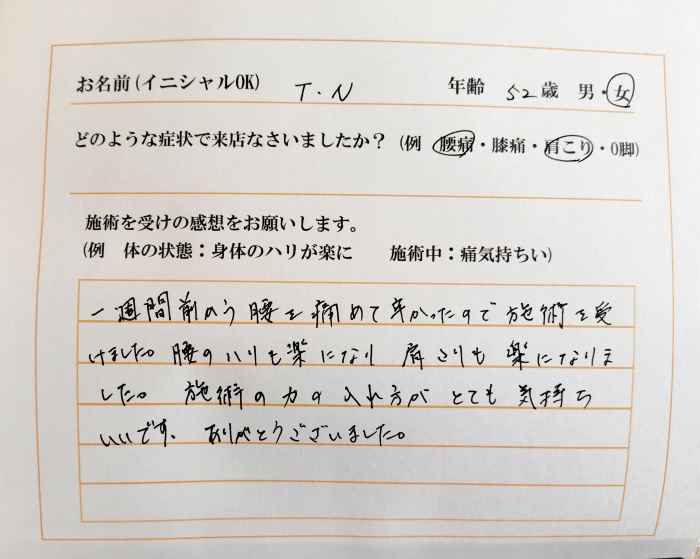 お名前(イニシャルOK) T.N 年齢 52歳 男・女
どのような症状で来店なさいましたか？(例 腰痛・膝痛・肩こり・O脚)
施術を受けの感想をお願いします。
(例 体の状態：身体のハリが楽に 施術中：痛気持ちい)
一週間前のう腰を痛めて辛かったので施術を受
けました。腰のハリも楽になり 肩こりも楽になりま
した。 施術の力の入れ方が とても 気持ち
いいです。 ありがとうございました。